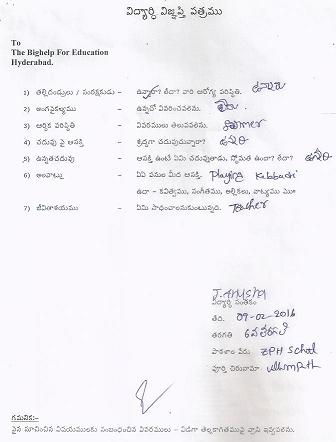 విద్యార్థి విజ్ఞప్తి పత్రము
To
The Bighelp For Education
Hyderabad.
1) తల్లిదండ్రులు / సంరక్షకుడు - ఉన్నారా? లేదా? వారి ఆరోగ్య పరిస్థితి. ఉన్నారు
2) అంగవైకల్యము - ఉన్నచో వివరించవలెను. లేదు.
3) ఆర్థిక పరిస్థితి - వివరములు తెలుపవలెను. Farmer
4) చదువు పై ఆసక్తి - శ్రద్ధగా చదువుచున్నారా? ఉన్నది
5) ఉన్నతచదువు - ఆసక్తి ఉంటే ఏమి చదువుతాడు, స్తోమత ఉందా? లేదా? ఉన్నది
6) అలవాట్లు - ఏఏ పనుల మీద ఆసక్తి. Playing Kabbadi
ఉదా - కవిత్వము, సంగీతము, అల్లికలు, నాట్యము
7) జీవితాశయము - ఏమి సాధించాలనుకుంటున్నది. Teacher
J. Anusha
విద్యార్థి సంతకం
తేది. 09-02-2016
తరగతి 6వ తరగతి
పాఠశాల పేరు ZPH School
పూర్తి చిరునామా
గమనిక:-
పైన సూచించిన విషయములకు సంబంధించిన వివరములు - విడిగా తెల్లకాగితముపై వ్రాసి ఇవ్వవలెను.